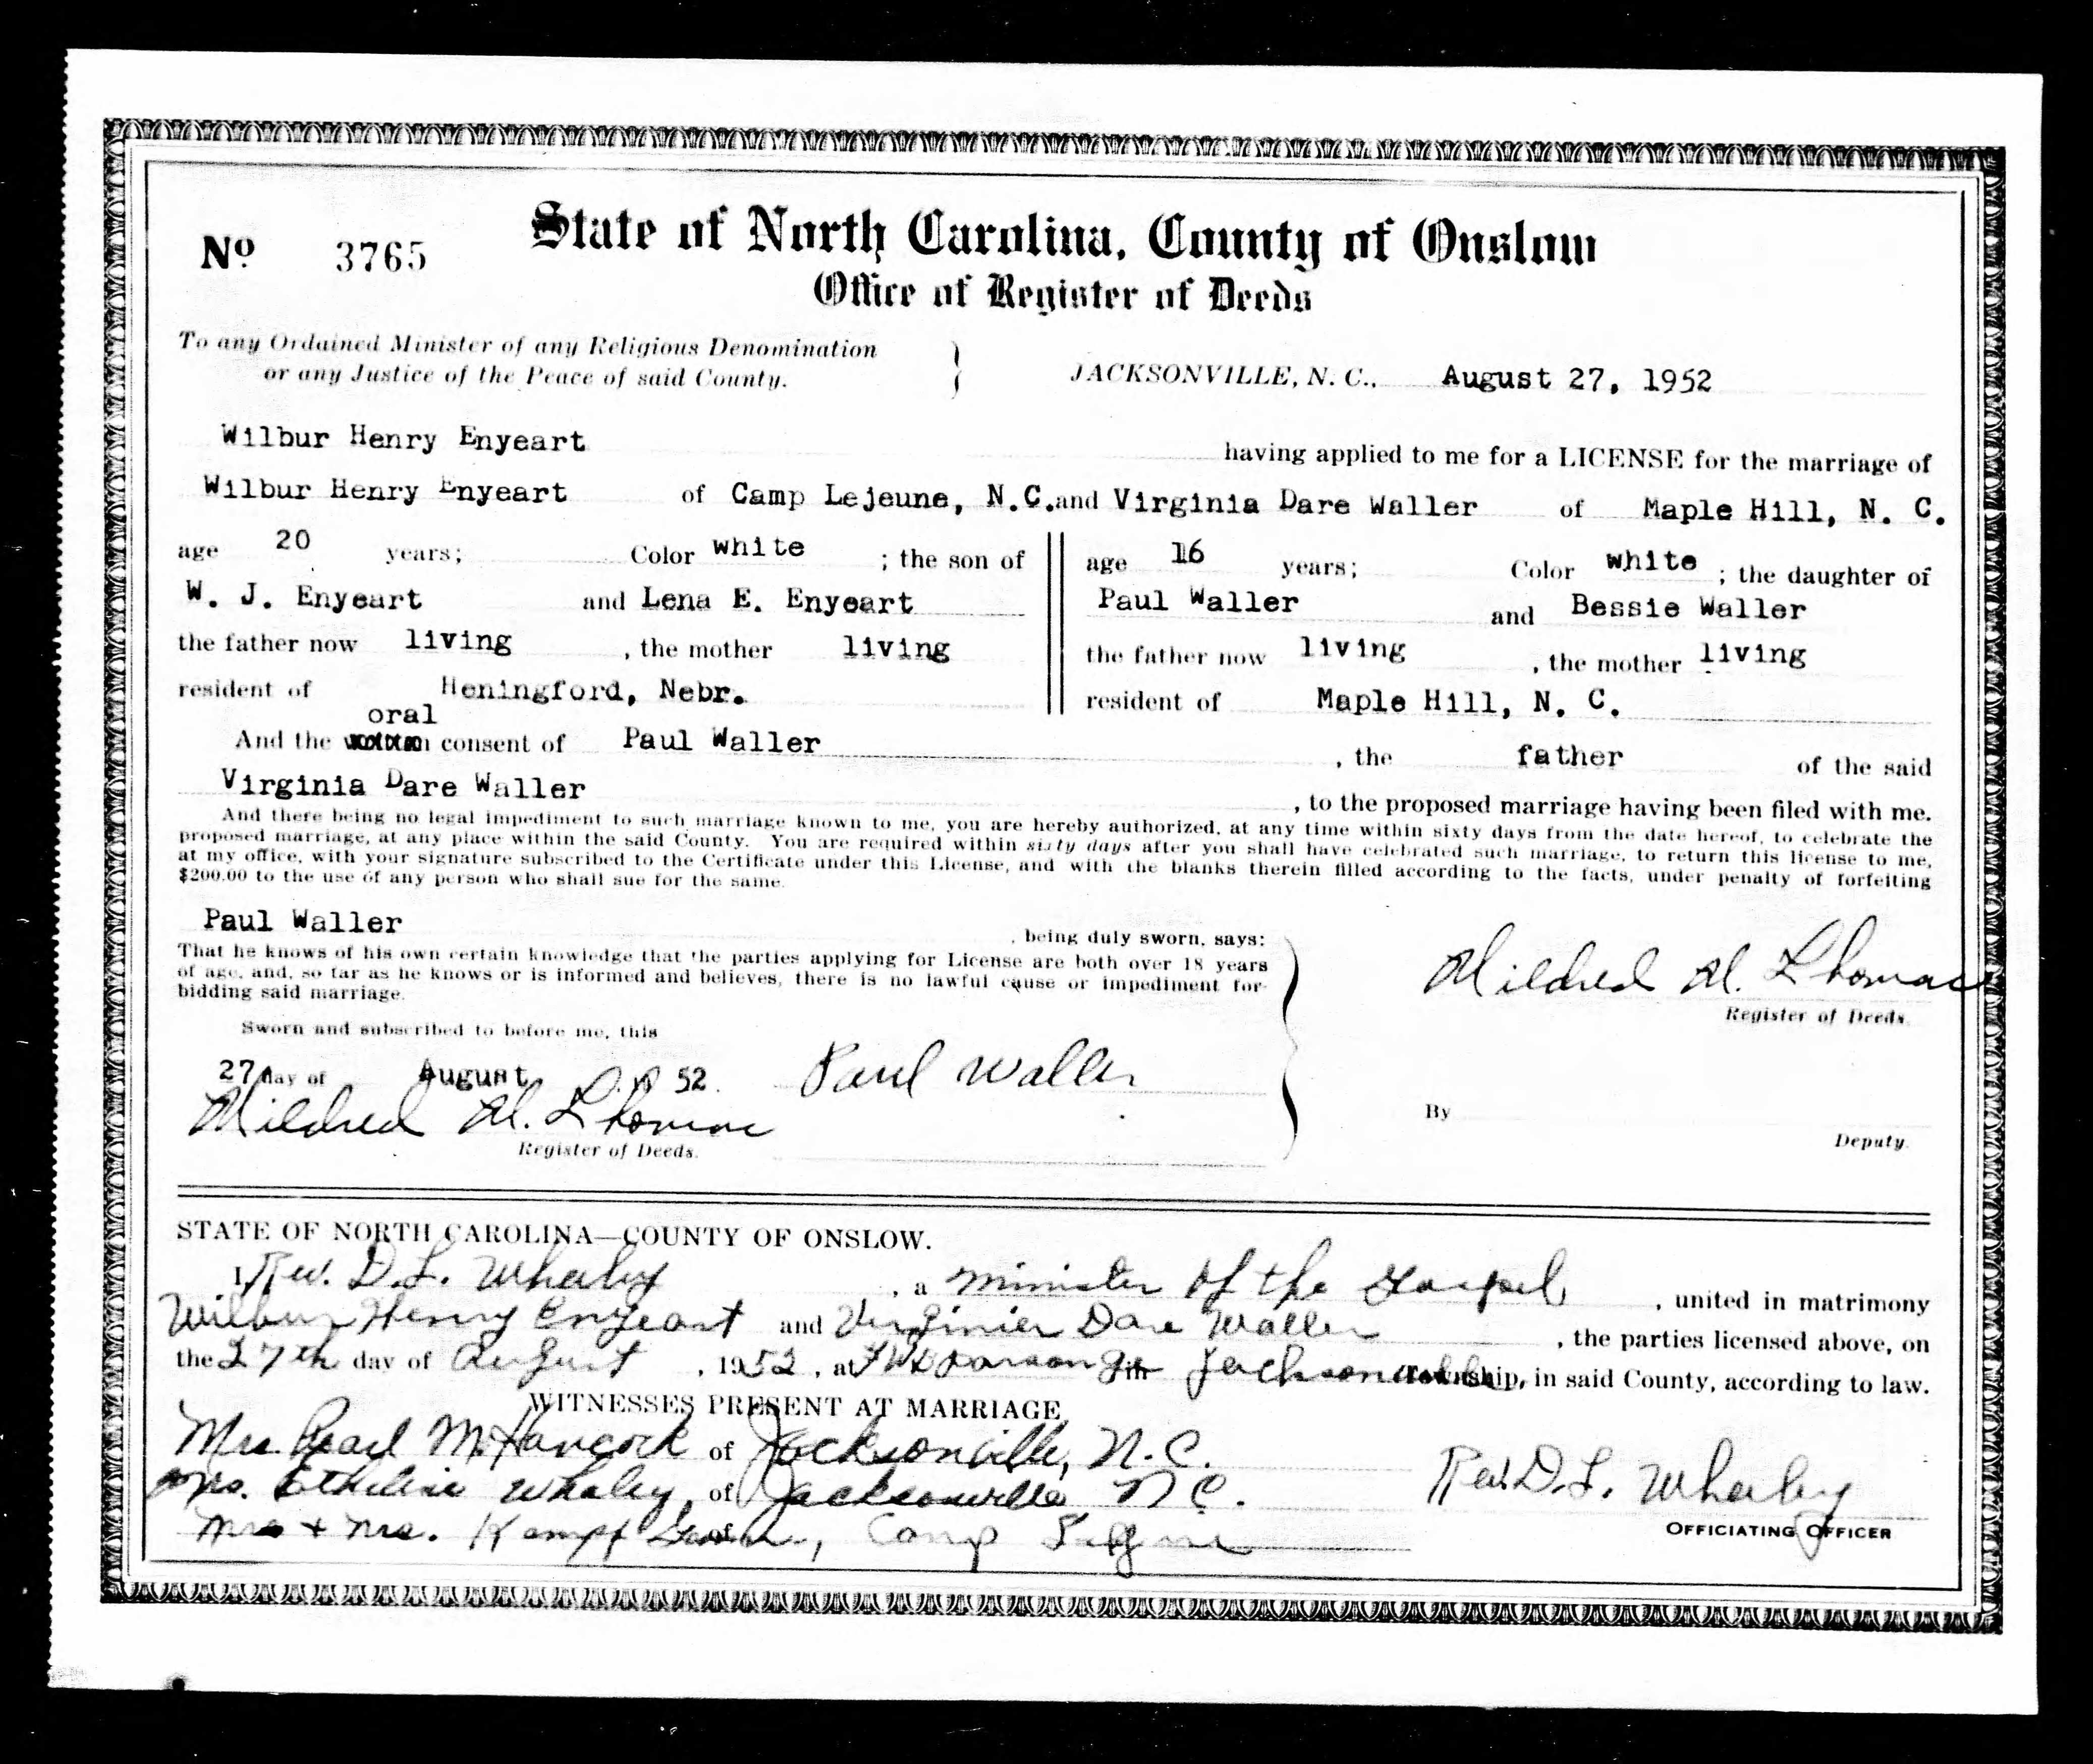 Nº 3765 State of North Carolina, County of Onslow
Office of Register of Deeds
To any Ordained Minister of any Religious Denomination
or any Justice of the Peace of said County. JACKSONVILLE, N. C., August 27, 1952
Wilbur Henry Enyeart having applied to me for a LICENSE for the marriage of
Wilbur Henry Enyeart of Camp Lejeune, N.C. and Virginia Dare Waller of Maple Hill, N. C.
age 20 years; Color white ; the son of
W. J. Enyeart and Lena E. Enyeart
the father now living , the mother living
resident of Heningford, Nebr.
age 16 years; Color white ; the daughter of
Paul Waller and Bessie Waller
the father now living , the mother living
resident of Maple Hill, N. C.
oral
And the written consent of Paul Waller , the father of the said
Virginia Dare Waller , to the proposed marriage having been filed with me.
And there being no legal impediment to such marriage known to me, you are hereby authorized, at any time within sixty days from the date hereof, to celebrate the
proposed marriage, at any place within the said County. You are required within sixty days after you shall have celebrated such marriage, to return this license to me,
at my office, with your signature subscribed to the Certificate under this License, and with the blanks therein filled according to the facts, under penalty of forfeiting
$200.00 to the use of any person who shall sue for the same.
Paul Waller , being duly sworn, says:
That he knows of his own certain knowledge that the parties applying for License are both over 18 years
of age, and, so far as he knows or is informed and believes, there is no lawful cause or impediment for-
bidding said marriage.
Sworn and subscribed to before me, this
27 day of August 52. Paul Waller
Mildred M. Thomas
Register of Deeds.
Mildred M. Thomas
Register of Deeds.
By
Deputy.
STATE OF NORTH CAROLINA—COUNTY OF ONSLOW.
I, Rev. D. L. Whaley , a minister of the Gospel , united in matrimony
Wilbur Henry Enyeart and Virginia Dare Waller , the parties licensed above, on
the 27th day of August , 1952 , at Parsonage in Jacksonville Township, in said County, according to law.
WITNESSES PRESENT AT MARRIAGE
Mrs. Pearl M. Hancock of Jacksonville, N.C.
Mrs. Etheline Whaley, of Jacksonville N C.
Mrs. , Camp
Rev. D. L. Whaley
OFFICIATING OFFICER